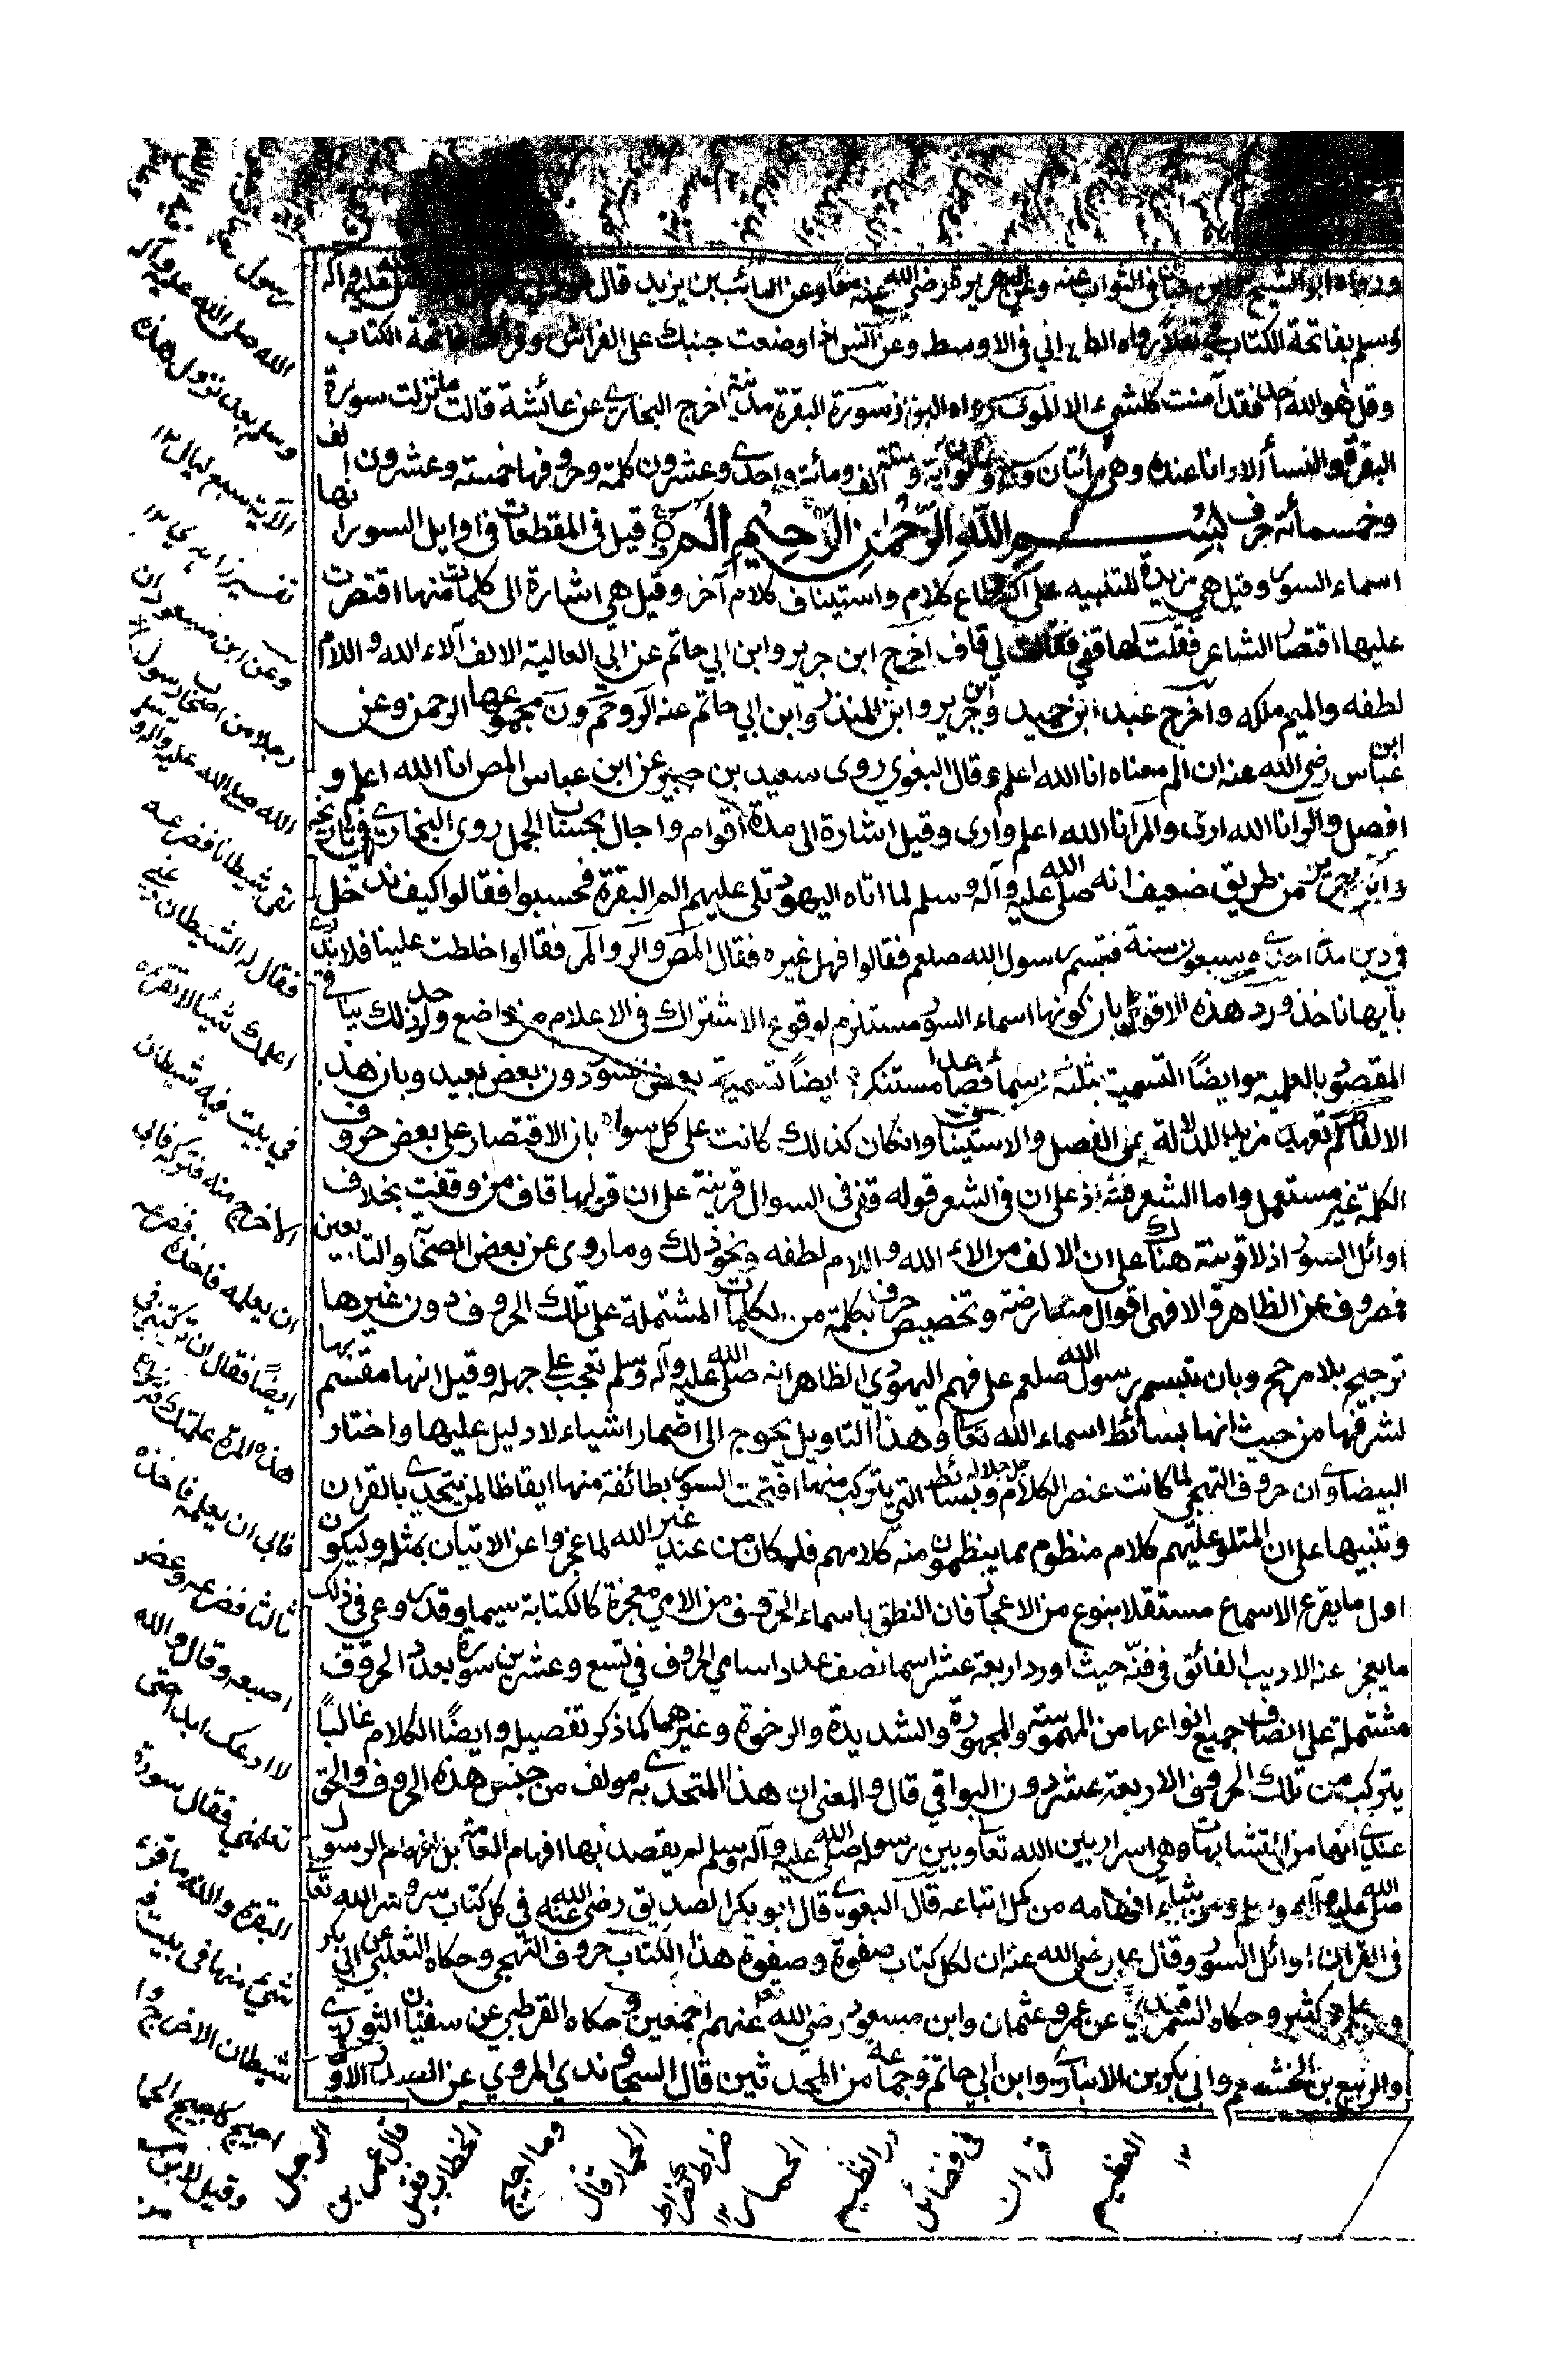 ورواه ابو الشيخ في الثواب عنه وعن ابي هريرة رضي الله عنه وعن السائب بن يزيد قال عليه وآله
وسلم بفاتحة الكتاب تفلا رواه الطبراني في الاوسط وعن انس اذا وضعت جنبك على الفراش وقرأت فاتحة الكتاب
وقل هو الله احد فقد آمنت كل شيء الا الموت رواه البزاز سورة البقرة مدنية اخرج البخاري عن عائشة قالت ما نزلت سورة
البقرة والنساء الا وانا عنده وهي مائتان آية وستة آلاف ومائة واحدى وعشرون كلمة وحروفها خمسة وعشرون الف
وخمسمائة حرف بسم الله الرحمن الرحيم الم قيل في المقطعات في اوايل السور انها
اسماء السور وقيل هي مزيدة للتنبيه على انقطاع كلام واستيناف كلام آخر وقيل هي اشارة الى كلمات منها اقتصرت
عليها اقتصار الشاعر فقلت لها قفي فقالت لي قاف اخرج ابن جرير وابن ابي حاتم عن ابي العالية الالف آلاء الله واللام
لطفه والميم ملكه واخرج عبد ابن حميد وابن جرير وابن المنذر وابن ابي حاتم عنه الر وحم ون مجموعها الرحمن وعن
ابن عباس رضي الله عنه ان الم معناه انا الله اعلم قال البغوي روى سعيد بن جبير عن ابن عباس المص انا الله اعلم و
افصل والر انا الله ارى والمر انا الله اعلم وارى وقيل اشارة الى مدة اقوام واجال بحساب الجمل روى البخاري في تاريخه
وابن جرير من طريق ضعيف انه صلى الله عليه وآله وسلم لما اتاه اليهود تلى عليهم الم البقرة فحسبوا فقالوا كيف ندخل
في دين مدته احدى وسبعون سنة فتبسم رسول الله صلعم فقالوا فهل غيره فقال المص والر والمر فقالوا خلطت علينا فلا ندري
بايها ناخذ ورد هذه الاقوال بان كونها اسماء السور مستلزم لوقوع الاشتراك في الاعلام من واضع واحد وذلك ينافي
المقصود بالعلمية وايضا التسمية بثلثة اسماء فصاعدا مستنكر ايضا تسمية بعض السور دون بعض بعيد وبان هذه
الالفاظ لم تعهد مزيدا للدلالة على الفصل والاستيناف وان كان كذلك كانت على كل سورة بان الاقتصار على بعض حروف
الكلمة غير مستعمل واما الشعر فشاذ على ان في الشعر قوله قفي في السوال قرينة على ان قولها قاف من وقفت بخلاف
اوائل السور اذ لا قرينة هناك على ان الالف من الاء الله واللام لطفه ونحو ذلك وما روى عن بعض الصحابة والتابعين
فمصروف عن الظاهر والا فهي اقوال متعارضة وتخصيص حرف بكلمة من الكلمات المشتملة على تلك الحروف دون غيرها
ترجيح بلا مرجح وبان تبسم رسول الله صلعم على فهم اليهودي الظاهر انه صلى الله عليه وآله وسلم تعجب على جهله وقيل انها مقسم بها
لشرفها من حيث انها بسائط اسماء الله تعالى وهذا التاويل يحوج الى اضمار اشياء لا دليل عليها واختار
البيضاوي ان حروف التهجي لما كانت عنصر الكلام وبسائط التي يتركب منها افتتحت السور بطائفة منها ايقاظا لمن يتحدى بالقران
وتنبيها على ان المتلو عليهم كلام منظوم مما ينظمون منه كلامهم فلو كان من عند غير الله لما عجزوا عن الاتيان بمثله وليكون
اول ما يقرع الاسماع مستقلا بنوع من الاعجاز فان النطق باسماء الحروف من الامي معجزة كالكتابة سيما وقد روعي في ذلك
ما يعجز عنه الاديب الفائق في فنه حيث اورد اربعة عشر اسما نصف عدد اسامي الحروف في تسع وعشرين سورة بعدد الحروف
مشتملة على انصاف جميع انواعها من المهموسة والمجهورة والشديدة والرخوة وغيرهما كما ذكر تفصيله وايضا الكلام غالبا
يتركب من تلك الحروف الاربعة عشر دون البواقي قال والمعنى ان هذا المتحدى به مولف من جنس هذه الحروف والحق
عندي انها من المتشابهات وهي اسرار بين الله تعالى وبين رسوله صلى الله عليه وآله وسلم لم يقصد بها افهام العامة بل افهام الرسول
صلى الله عليه وآله وسلم ومن شاء افهامه من كمل اتباعه قال البغوي قال ابو بكر الصديق رضي الله عنه في كل كتاب سر وسر الله تعالى
في القران اوائل السور وقال علي رضي الله عنه ان لكل كتاب صفوة وصفوة هذا الكتاب حروف التهجي وحكاه الثعلبي عن ابي بكر
وعن علي وكثير وحكاه السمرقندي عن عمر وعثمان وابن مسعود رضي الله تعالى عنهم اجمعين وحكاه القرطبي عن سفيان الثوري
والربيع بن الخثيم وابي بكر بن الانباري وابن ابي حاتم وجماعة من المحدثين قال السجاوندي المروي عن الصدر الاول
رسول
الله صلى الله عليه وآله
وسلم بعد نزول هذه
الآية سبع ليال ١٢
وعن ابن مسعود ان
رجلا من اصحاب رسول
الله صلى الله عليه وآله وسلم
لقي شيطانا فصرعه
فقال له الشيطان دعني
اعلمك شيئا لا تقرءه
في بيت فيه شيطان
الا خرج منه فتركه فابى
ان يعلمه فاخذه فصرعه
ايضا فقال ان تركتني في
هذه المرة علمتك فتركه
فابى ان يعلمه فاخذه
ثالثا فصرعه وعض
اصبعه وقال والله
لا ادعك ابدا حتى
تعلمني فقال سورة
البقرة والله ما قرئ
شيئ منها في بيت فيه
شيطان الا خرج وله
خبيج كخبيج الحمار
وقيل لابن مسعود من
الرجل
قال عمر بن
الخطاب
وما الخبيج
قال
ضراط
الحمار ١٢
در النظيم
في فضائل
قرآن
العظيم
١٢